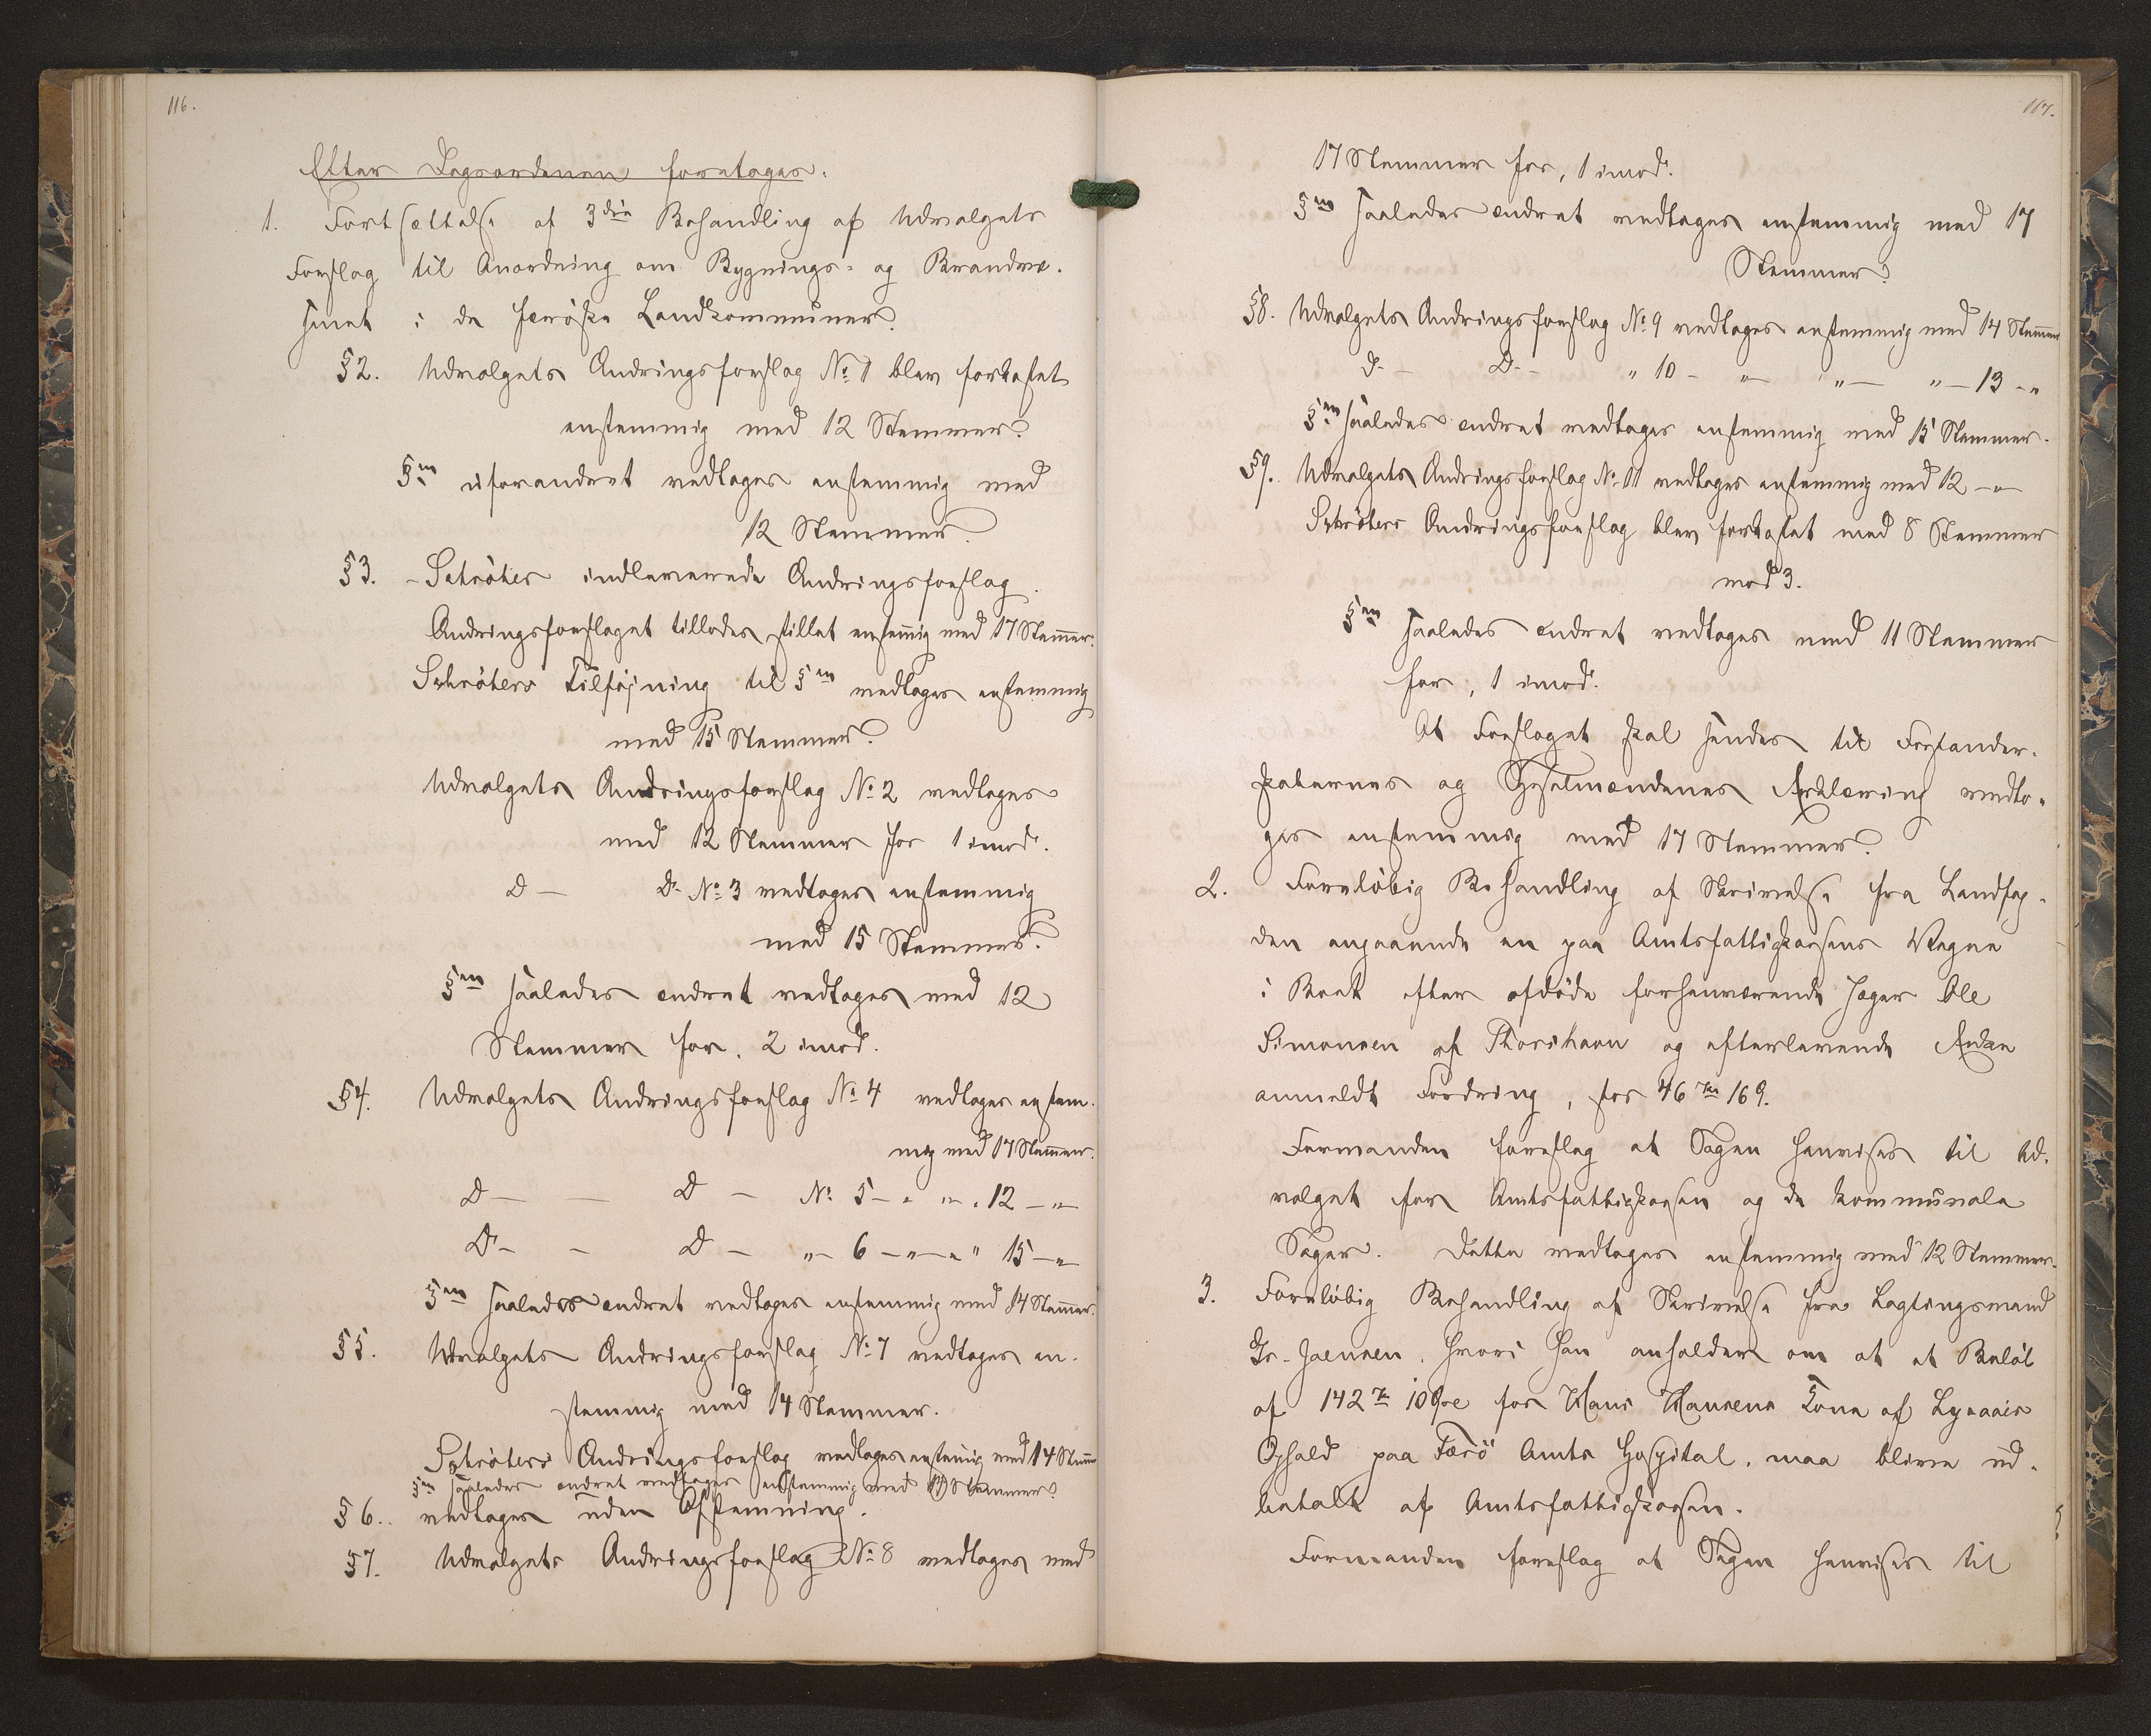 116.
Efter Dagsordenen foretoges:
1. Fortsættelse af 3die Behandling af Udvalgets
Forslag til Anordning om Bygnings- og Brandvæ-
snet i de færøske Landkommuner.
§2. Udvalgets Ændringsforslag No 1 blev forkastet
enstemmig med 12 Stemmer.
§en uforandret vedtoges enstemmig med
12 Stemmer.
§3. - Schrøter indleverede Ændringsforslag.
Ændringsforslaget tillodes stillet enstemig med 17 Stemer.
Schrøters Tilføjning til §en vedtoges enstemmig
med 15 Stemmer.
Udvalgets Ændringsforslag No 2 vedtoges
med 12 Stemmer for 1 imod.
D — D - No 3 vedtoges enstemmig
med 15 Stemmer.
§en saaledes ændret vedtoges med 12
Stemmer for, 2 imod.
§4. Udvalgets Ændringsforslag No 4 vedtoges enstem-
mig med 17 Stemmer.
D — — D — No 5 — " — " 12 — " —
D — — D — " — 6 — " — " " 15 — "
§en saaledes ændret vedtoges enstemmig med 14 Stemer.
§5. Udvalgets Ændringsforslag No 7 vedtoges en-
stemmig med 14 Stemmer.
Schrøters Ændringsforslag vedtoges enstemig med 14 Stem
§en saaledes ændret vedtoges enstemmig med 17 Stemmer.
§6. vedtoges uden Afstemning.
§7. Udvalgets Ændringsforslag No 8 vedtoges med
117.
17 Stemmer for, 1 imod.
§en saaledes ændret vedtoges enstemmig med 17
Stemmer.
§8. Udvalgets Ændringsforslag No 9 vedtoges enstemmig med 14 Stemmer
D — D — " 10 — " — " — " — 13 — "
§en saaledes ændret vedtoges enstemmig med 15 Stemmer.
§9. Udvalgets Ændringsforslag No 11 vedtoges enstemmig med 12 — " —
Schrøters Ændringsforslag blev forkastet med 8 Stemmer
mod 3.
§en saaledes ændret vedtoges med 11 Stemmer
for, 1 imod.
At Forslaget skal sendes til Forstander-
skabernes og Sysselmændenes Erklæring vedto-
ges enstemmig med 17 Stemmer.
2. Foreløbig Behandling af Skrivelse fra Landfog-
den angaaende en paa Amtsfattigkassens Vegne
i Boet efter afdøde forhenværende Jæger Ole
Simonsen af Thorshavn og efterlevende Enke
anmeldt Fordring, for 46 Kr 16 Ø.
Formanden foreslog at Sagen henvises til Ud-
valget for Amtsfattigkassen og de kommunale
Sager. Dette vedtoges enstemmig med 12 Stemmer.
3. Foreløbig Behandling af Skrivelse fra Lagtingsmand
Gr. Joensen, hvori han anholder om at et Beløb
af 142 Kr 10 Øre for Hans Hansens Kone af Lyaaais
Ophold paa Færø Amts Hospital, maa blive ud-
betalt af Amtsfattigkassen.
Formanden foreslog at Sagen henvises til